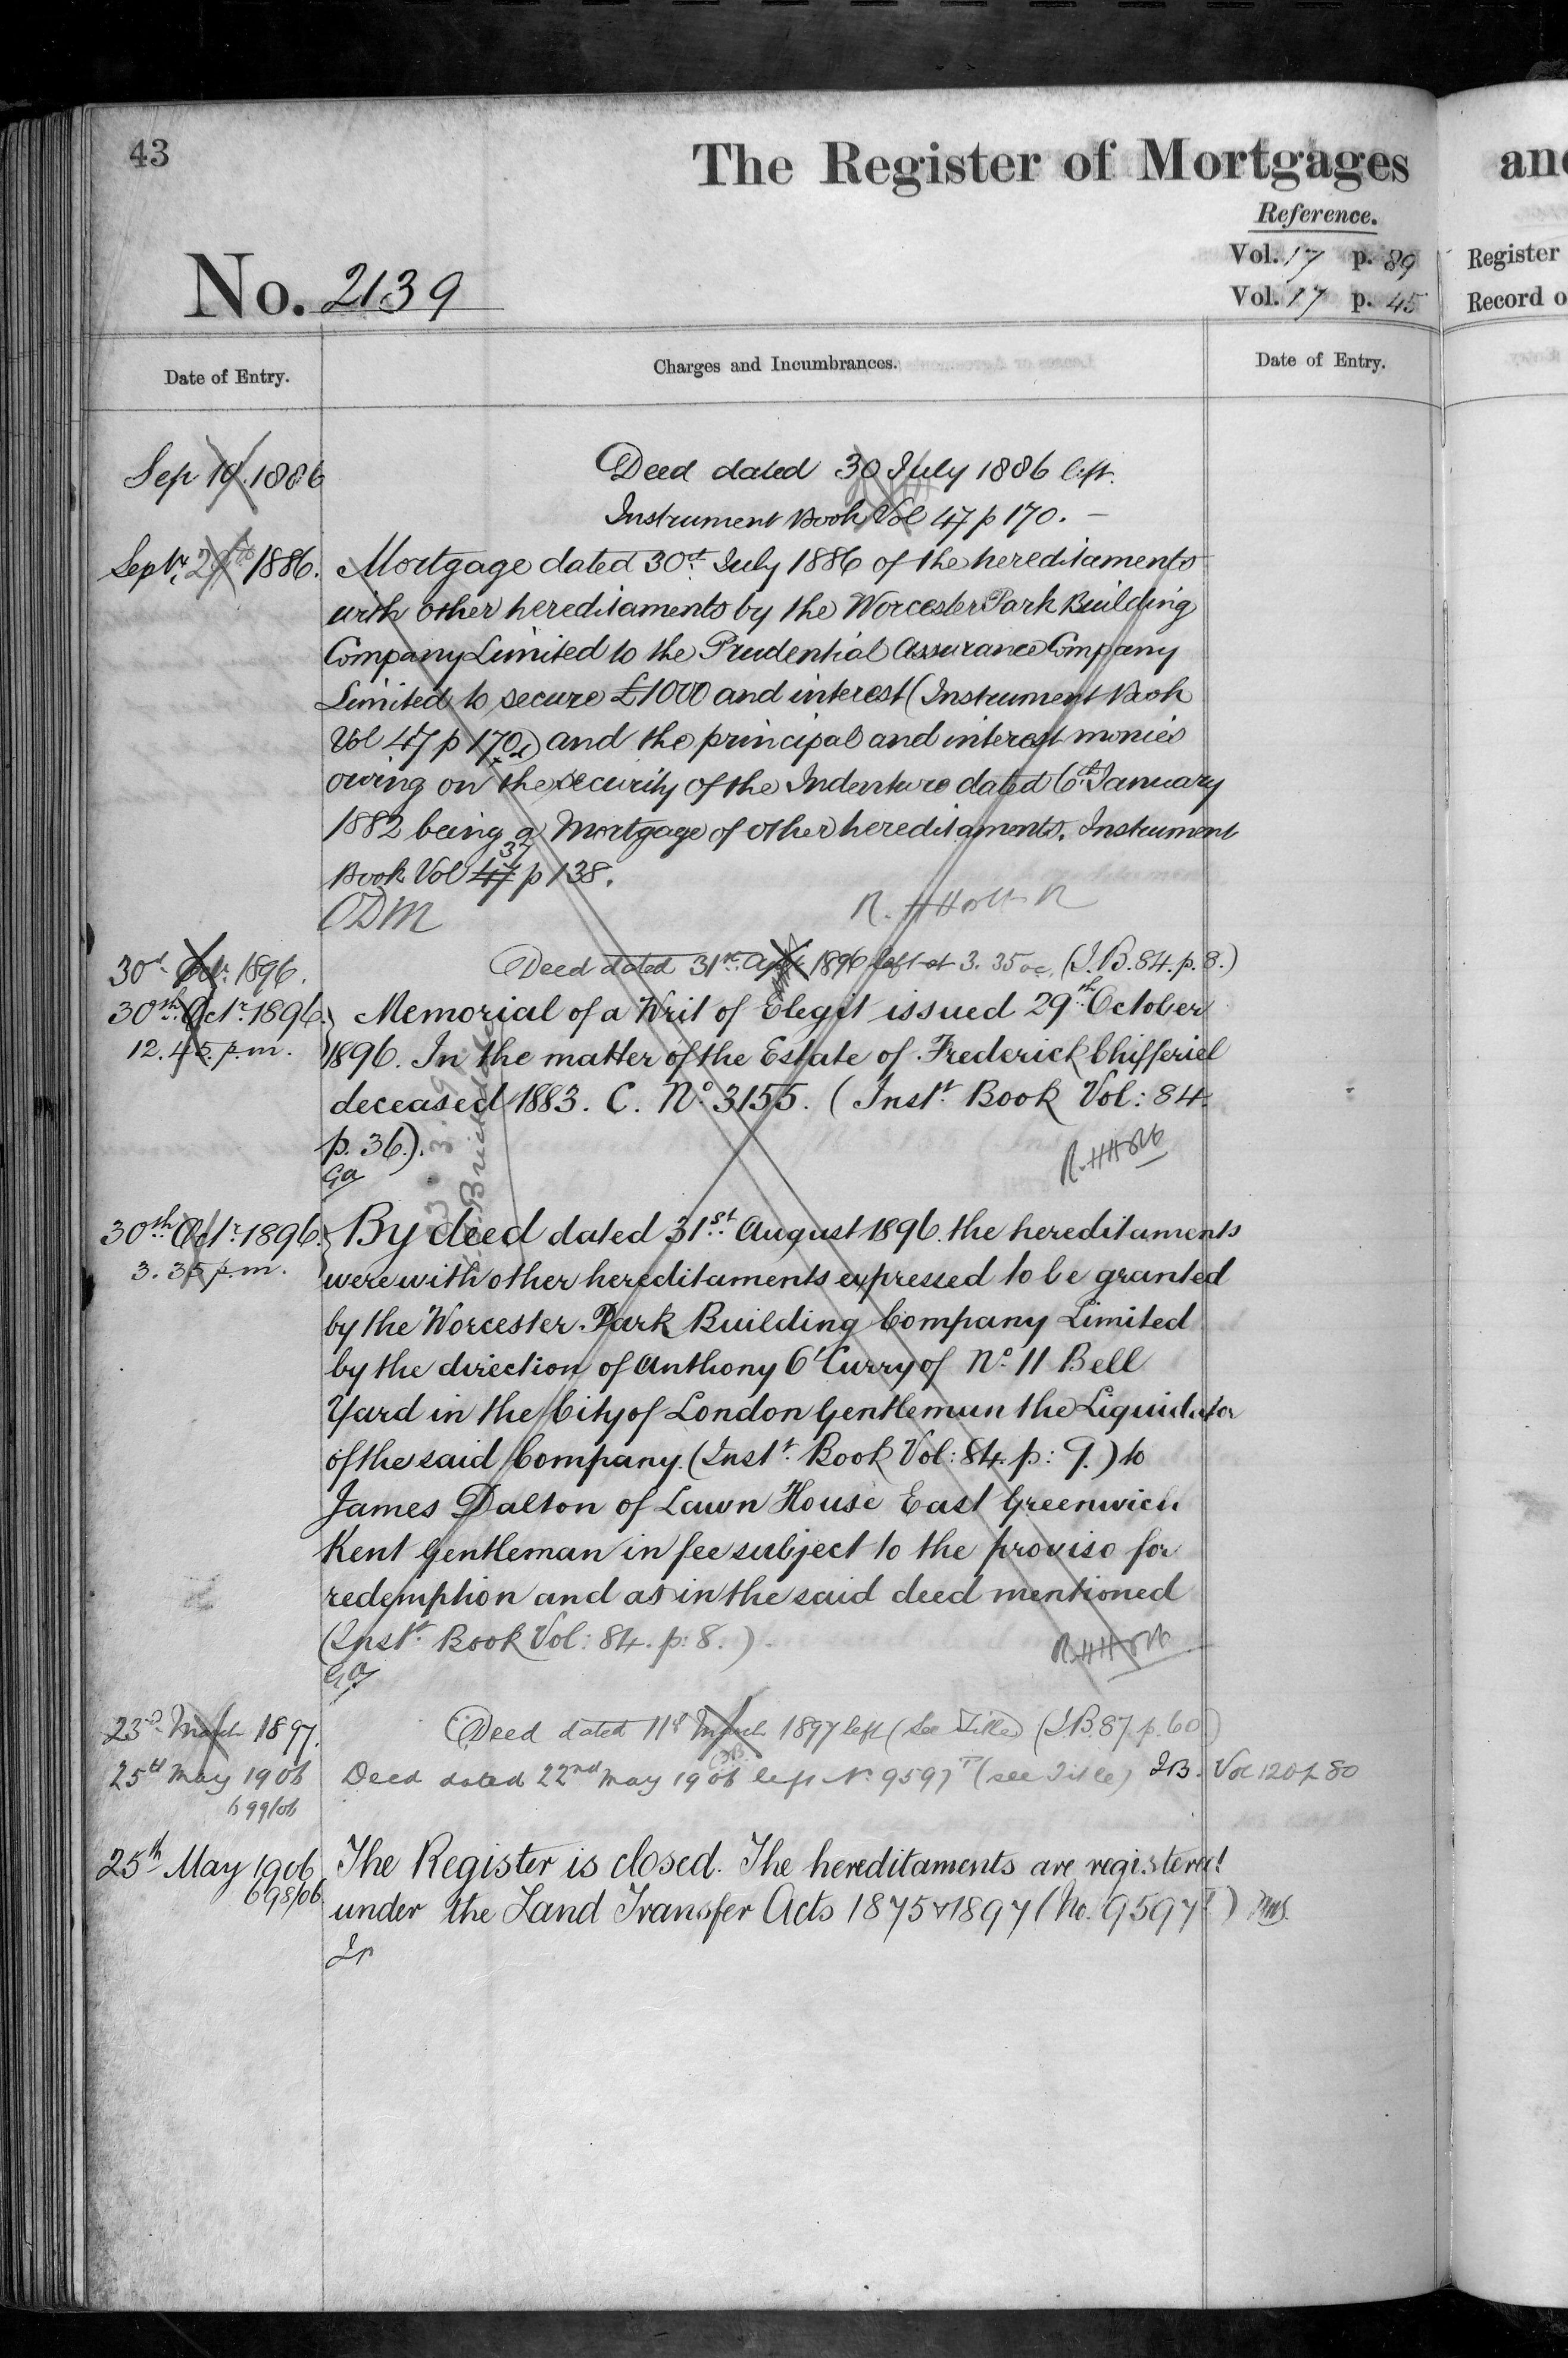 43
The Register of Mortgages
Reference.
Vol. 17 p. 89
Vol. 17 p. 45
No. 2139
Date of Entry.
Charges and Incumbrances.
Date of Entry.
Sep 1886
Deed dated 30 July 1886 left.
Instrument Book Vol 47 p 170. —
Septr. 1886.
Mortgage dated 30th July 1886 of the hereditaments
with other hereditaments by the Worcester Park Building
Company Limited to the Prudential Assurance Company
Limited to secure £1000 and interest (Instrument Book
Vol 47 p 170) and the principal and interest monies
owing on the security of the Indenture dated 6th January
1882 being a Mortgage of other hereditaments. Instrument
Book Vol 47 37 p 138.
ODM
R. H Holt R
30th Octr. 1896.
Deed dated 31st 1896 left at 3.35 (I.B. 84. p. 8.)
30th Octr. 1896.
12.45 p.m.
Memorial of a Writ of Elegit issued 29th October
1896. In the matter of the Estate of Frederick Chifferiel
deceased 1883. C. No. 3155. (Instt. Book Vol: 84.
p. 36.).
Ga
R.H Holt
30th Octr. 1896.
3.35 p.m.
By deed dated 31st August 1896. the hereditaments
were with other hereditaments expressed to be granted
by the Worcester Park Building Company Limited
by the direction of Anthony O'Curry of No. 11 Bell
Yard in the City of London Gentleman the Liquidator
of the said Company. (Instt. Book Vol: 84. p: 9.) to
James Dalton of Lawn House East Greenwich
Kent Gentleman in fee subject to the proviso for
redemption and as in the said deed mentioned
(Instt. Book Vol: 84. p: 8.)
Ga
R.H Holt
23rd March 1897.
Deed dated 11th March 1897 left (See Title) (I.B. 87. p. 60.)
25th May 1906
699/06
Deed dated 22nd May 1906 left No 9597 (see Title) I.B. Vol 120 p 80
25th May 1906
698/06
The Register is closed. The hereditaments are registered
under the Land Transfer Acts 1875 & 1897 (No. 9597)
and
Register
Record o